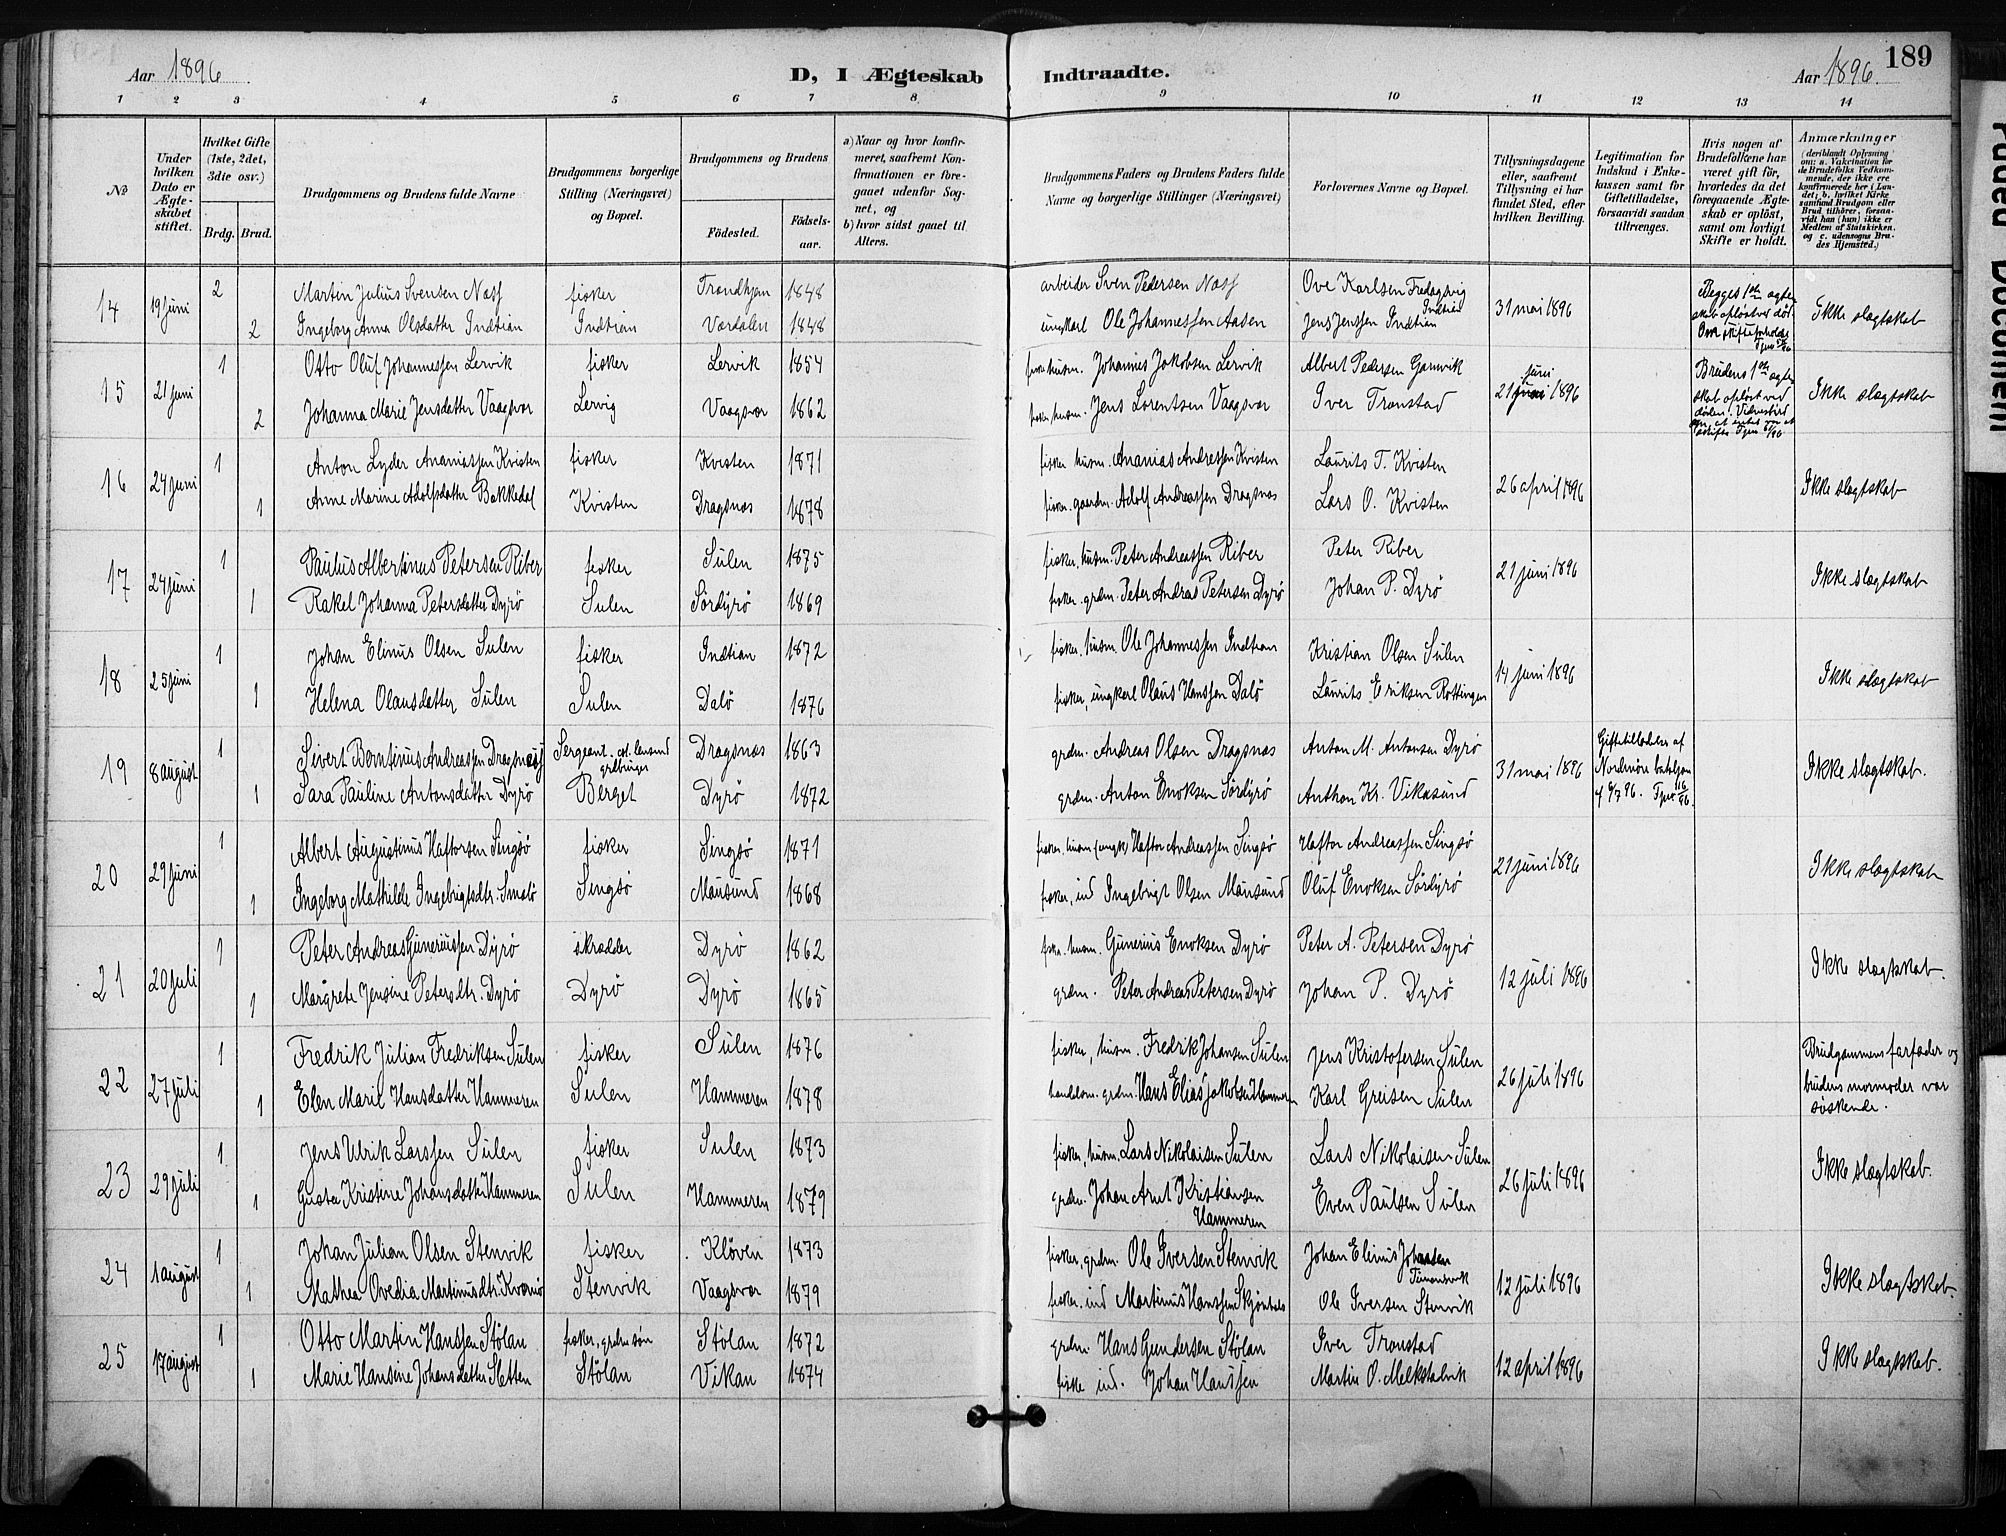 189
Aar 1896
D, I Ægteskab Indtraadte.
Aar 1896.
1 2 3 4 5 6 7 8 9 10 11 12 13 14
No
Under hvilken Dato er Ægteskabet stiftet.
Hvilket Gifte (1ste, 2det, 3die osv.)
Brdg. Brud.
Brudgommens og Brudens fulde Navne
Brudgommens borgerlige Stilling (Næringsvei) og Bopæl.
Brudgommens og Brudens
Födested. Födselsaar.
a) Naar og hvor konfirmeret, saafremt Konfirmationen er foregaaet udenfor Sognet, og
b) hvor sidst gaaet til Alters.
Brudgommens Faders og Brudens Faders fulde Navne og borgerlige Stillinger (Næringsvei)
Forlovernes Navne og Bopæl.
Tillysningsdagene eller, saafremt Tillysning ei har fundet Sted, efter hvilken Bevilling.
Legitimation for Indskud i Enkekassen samt for Giftetilladelse, forsaavidt saadan tiltrænges.
Hvis nogen af Brudefolkene har været gift før, hvorledes da det foregaaende Ægteskab er opløst, samt om lovligt Skifte er holdt.
Anmærkninger
(deriblandt Oplysning om: a. Vakcination for de Brudefolks Vedkommende, der ikke ere konfirmerede her i Landet; b. hvilket Kirkesamfund Brudgom eller Brud tilhörer, forsaavidt han (hun) ikke er Medlem af Statskirken. og c. udensogns Brudes Hjemsted.)
14 19 juni 2 Martin Julius Svensen Næss fisker Trondhjem 1848 arbeider Sven Pedersen Næss Ove Karlsen Fredagsvig Indtian 31 mai 1896 Begges 1ste ægteskab opløst ved død. Ikke slægtskab
2 Ingeborg Anna Olsdatter Indtian Indtian Værdalen 1848 ungkarl Ole Johannessen Aasen Jens Jenssen Indtian
15 21 juni 1 Otto Oluf Johannessen Lervik fisker Lervik 1854 Johannes Jakobsen Lervik Albert Pedersen Gamvik 21 juni 1896 Brudens 1ste ægteskab opløst ved døden. Ikke slægtskab
2 Johanna Marie Jensdatter Vaagsvær Lervig Vaagsvær 1862 fisker husm. Jens Lorentsen Vaagsvær Iver Tronstad
16 24 juni 1 Anton Lyder Ananiassen Kvisten fisker Kvisten 1871 fisker husm. Ananias Andressen Kvisten Laurits T. Kvisten 26 april 1896 Ikke slægtskab
1 Anne Marine Adolfsdatter Bakkedal Kvisten Dragsnæs 1878 fisker. gaardm. Adolf Andreassen Dragsnæs Lars O. Kvisten
17 24 juni 1 Paulus Albertinus Petersen Riber fisker Sulen 1875 fisker, husm. Peter Andreassen Riber Peter Riber 21 juni 1896 Ikke slægtskab
1 Rakel Johanna Petersdatter Dyrö Sulen Sördyrö 1869 fisker. grdm. Peter Andreas Petersen Dyrö Johan P. Dyrö
18 25 juni 1 Johan Elinus Olsen Sulen fisker Indtian 1872 fisker, husm. Ole Johannessen Indtian Kristian Olsen Sulen 14 juni 1896 Ikke slægtskab
1 Helena Olausdatter Sulen Sulen Dalö 1876 fisker, ungkarl Olaus Hanssen Dalö Laurits Eriksen Rottingen
19 8 august 1 Sivert Berntinus Andreassen Dragsnæs Sergeant Dragsnæs 1863 grdm. Andreas Olsen Dragsnæs Anton M. Antonsen Dyrö 31 mai 1896 Giftetilladelse af Nordmöre bataljon Ikke slægtskab.
1 Sara Pauline Antonsdatter Dyrö Berget Dyrö 1872 grdm. Anton Enoksen Sördyrö Anthon Kr. Vikasund
20 29 juni 1 Albert Augustinus Haftorsen Singsö fisker Singsö 1871 fisker, husm (ungk) Haftor Andreassen Singsö Haftor Andreassen Singsö 21 juni 1896 Ikke slægtskab
1 Ingeborg Mathilde Ingebrigtsdtr. Smalö Singsö Mausund 1868 fisker, ind Ingebrigt Olsen Mausund Oluf Enoksen Sördyrö
21 20 juli 1 Peter Andreas Guneriussen Dyrö skrædder Dyrö 1862 husm. Gunerius Enoksen Dyrö Peter A. Petersen Dyrö 12 juli 1896 Ikke slægtskab.
1 Margrete Jensine Petersdtr. Dyrö Dyrö Dyrö 1865 grdm. Peter Andreas Petersen Dyrö Johan P. Dyrö
22 27 juli 1 Fredrik Julian Fredriksen Sulen fisker Sulen 1876 fisker, husm. Fredrik Johansen Sulen Jens Kristofersen Sulen 26 juli 1896 Brudgommens farfader og brudens mormoder var söskende.
1 Elen Marie Hansdatter Hammeren Sulen Hammeren 1878 handelsm. grdm. Hans Elias Jakobsen Hammeren Karl Greisen Sulen
23 29 juli 1 Jens Ulrik Larssen Sulen fisker Sulen 1873 fisker, husm. Lars Nikolaisen Sulen Lars Nikolaisen Sulen 26 juli 1896 Ikke slægtskab.
1 Gusta Kristine Johansdatter Hammeren Sulen Hammeren 1879 grdm. Johan Arnt Kristiansen Hammeren Even Paulsen Sulen
24 1 august 1 Johan Julian Olsen Stenvik fisker Klöven 1873 fisker, grdm. Ole Iversen Stenvik Johan Elinus Johansen 12 juli 1896 Ikke slægtskab.
1 Mathea Ovedia Martinusdtr. Kvernö Stenvik Vaagsvær 1879 fisker. ind Martinus Hanssen Ole Iversen Stenvik
25 17 august 1 Otto Martin Hanssen Stölan fisker, grdm. sön Stölan 1872 grdm. Hans Gundersen Stölan Iver Tronstad 12 april 1896 Ikke slægtskab.
1 Marie Hansine Johansdatter Sletten Stölan Vikan 1874 ind. Johan Hanssen Martin O. Melkstalvik